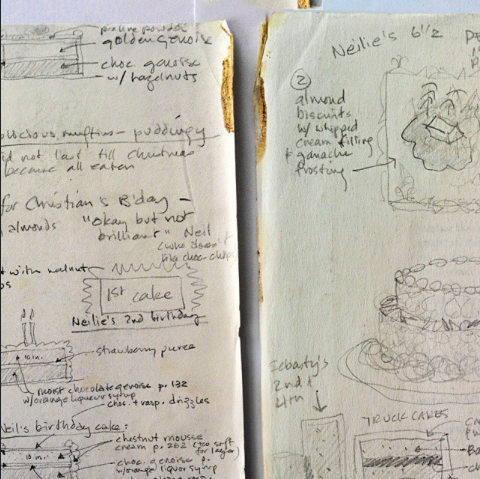 praline powder
golden genoise
choc genoise
w/ hazelnuts
muffins - puddingy
did not last till Christmas
because all eaten
for Christian's B'day -
almonds "okay but not
brilliant" Neil
(who doesn't
like choc chips
with walnut
1st cake
Neilie's 2nd birthday
10 in.
strawberry puree
moist chocolate genoise p. 132
w/orange liqueur syrup
choc. + rasp. drizzles
Neil's birthday cake:
chestnut mousse
cream p. 262 (too soft
for layer)
choc. genoise p.
w/orange liquor syrup
Neilie's 6 1/2
2
almond
biscuits
w/ whipped
cream filling
+ ganache
frosting
Sebasty's
2nd +
4th
TRUCK CAKES